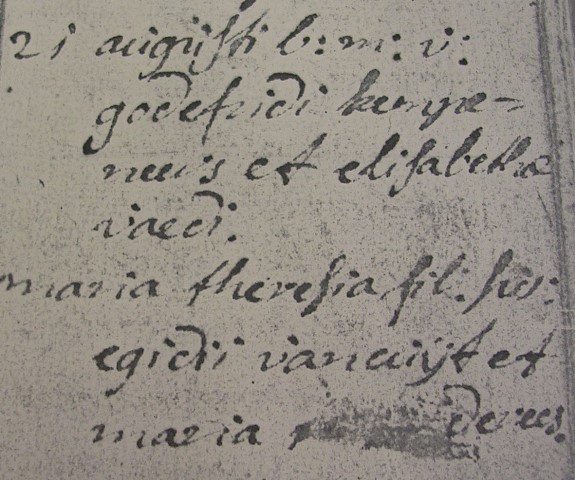 21 augusti b: m: v:
godefridi kempe=
neers et elisabethæ
vaedi.
maria theresia fil: sus:
egidii vancuijt et
maria